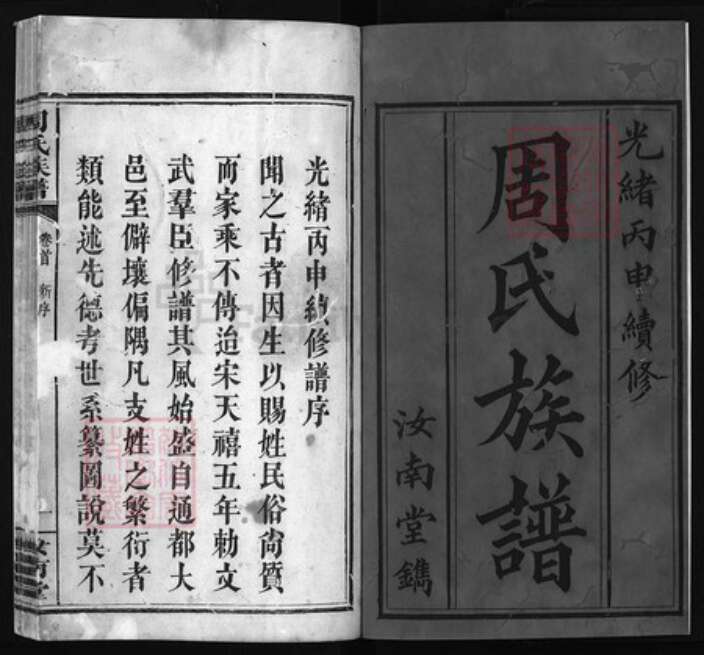 光緒丙申續修
周氏族譜
汝南堂鐫
光緒丙申續修譜序
聞之古者因生以賜姓民俗尚質
而家乘不傳迨宋天禧五年勅文
武羣臣修譜其風始盛自通都大
邑至僻壤偏隅凡支姓之繁衍者
類能述先德考世系纂圖說莫不
周氏族譜
卷首 新序
一
汝南堂